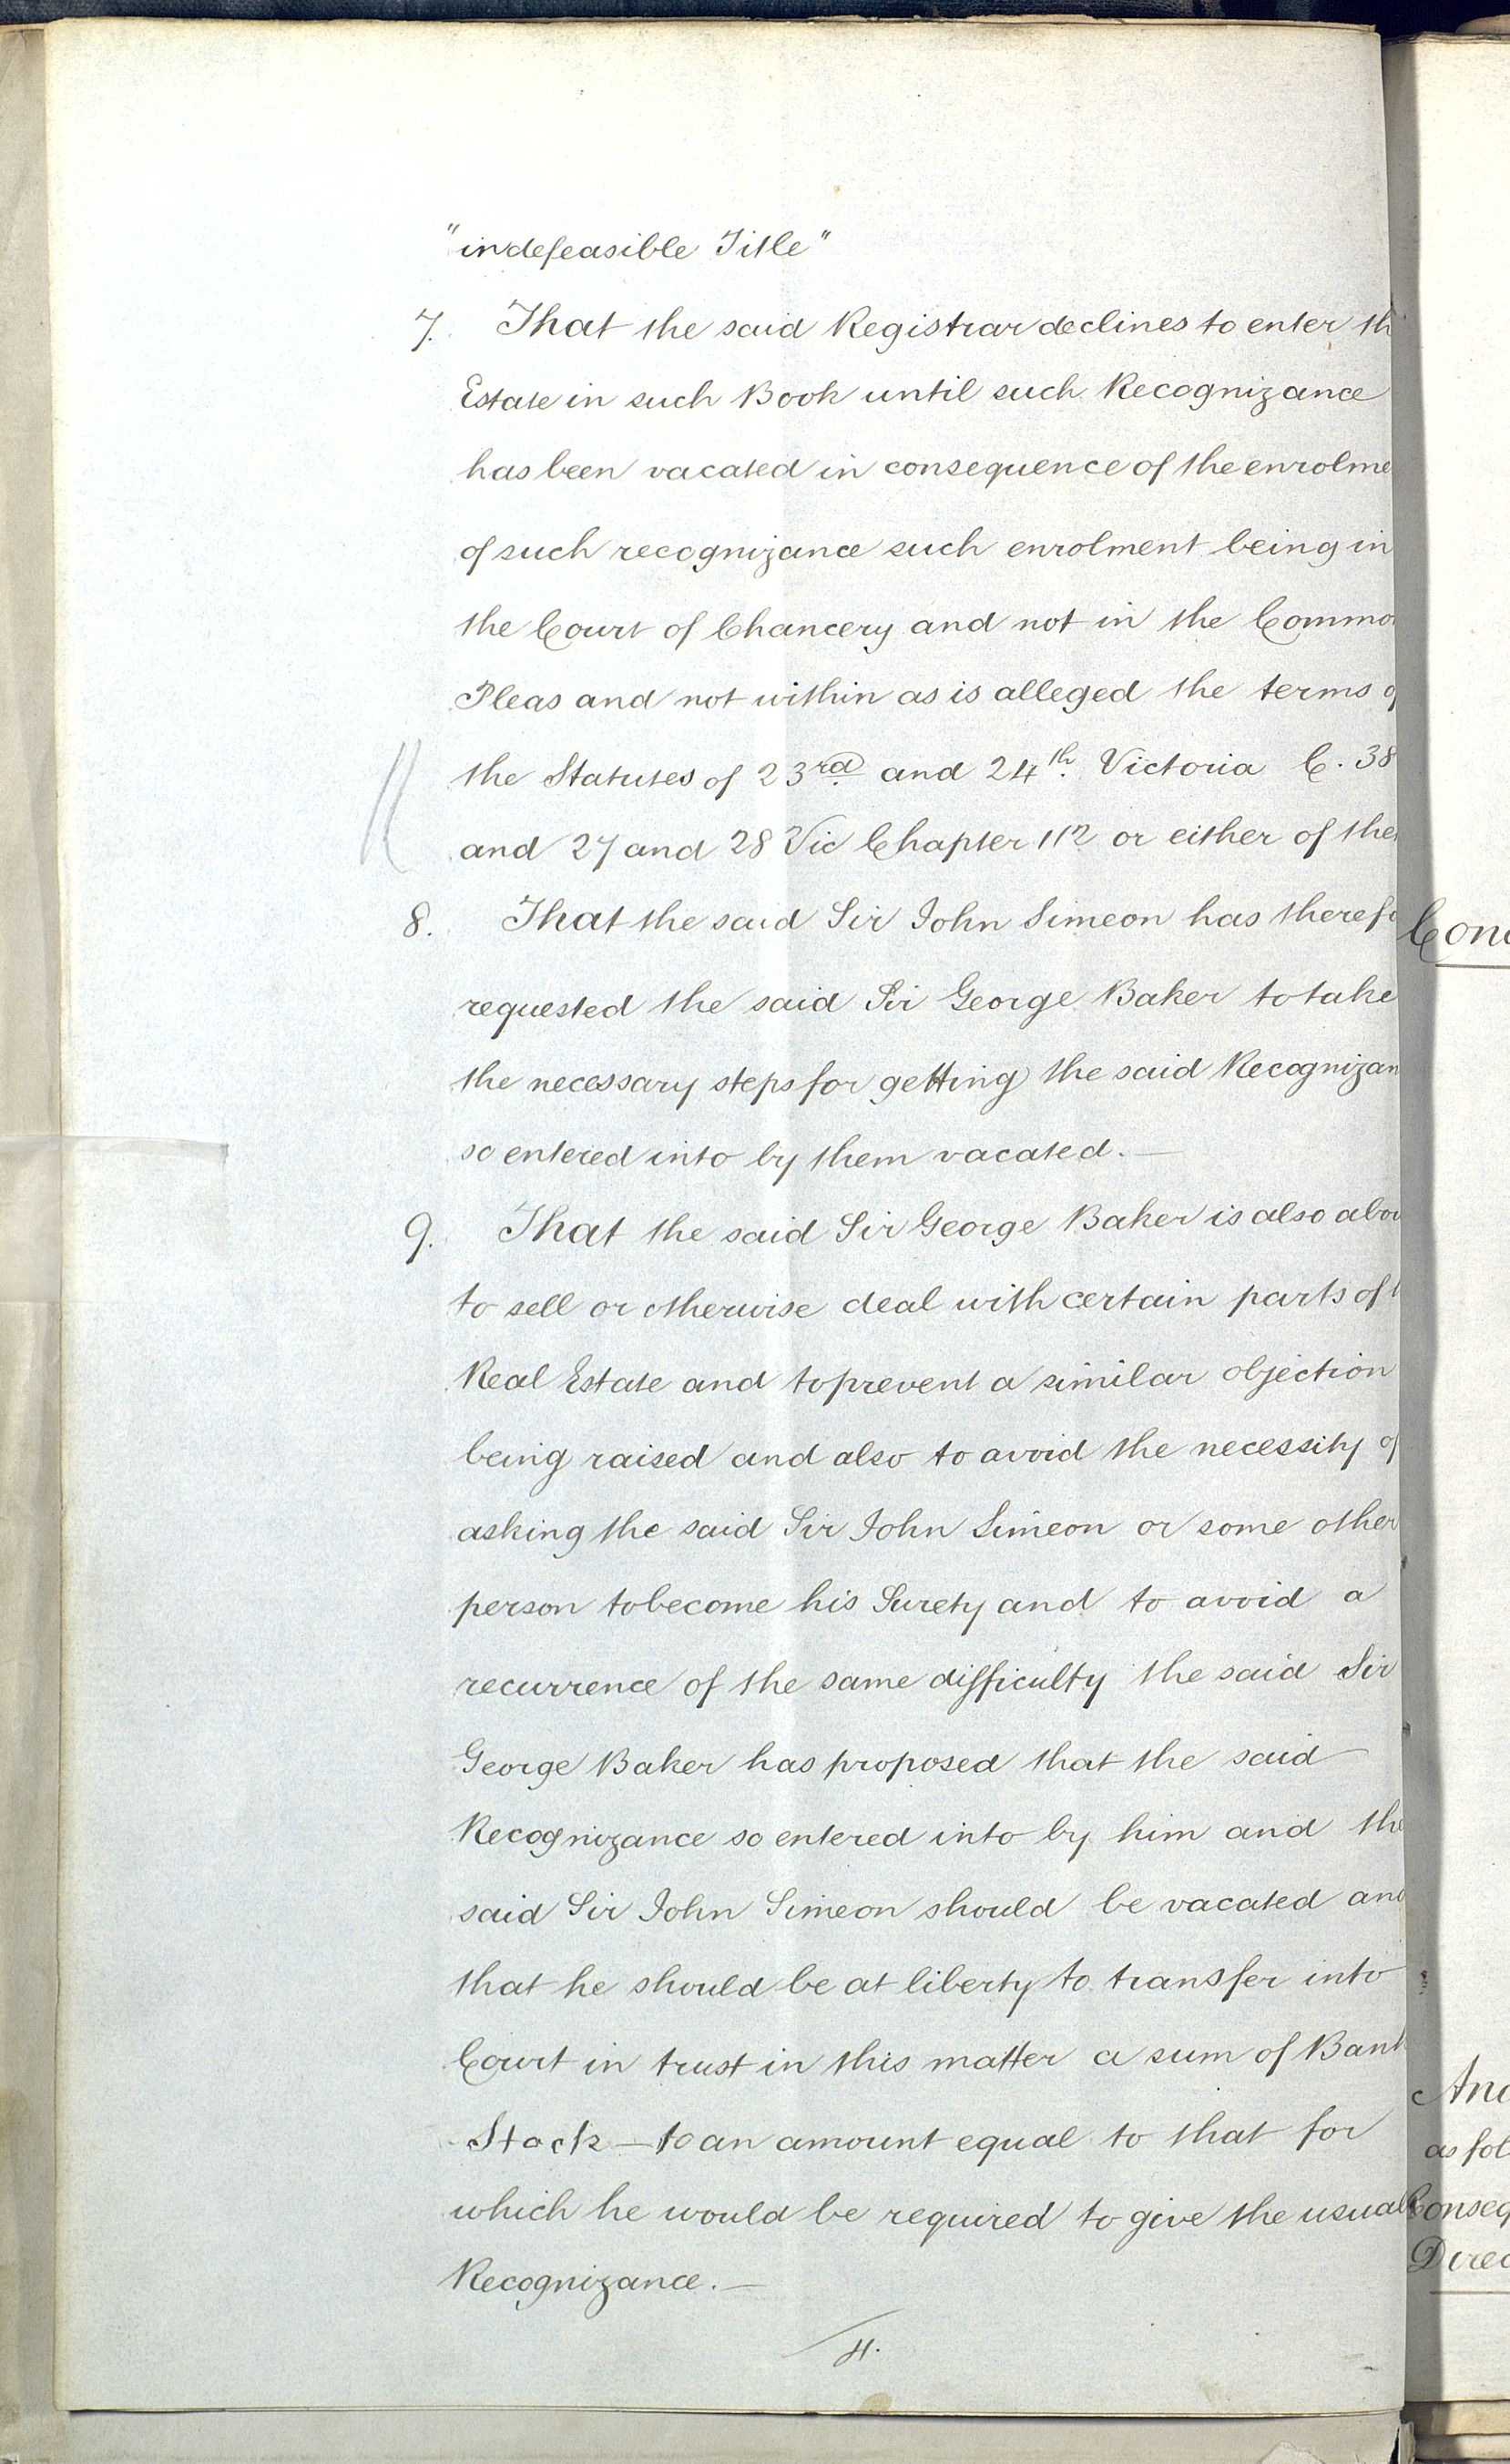 "indefeasible Title"
7. That the said Registrar declines to enter th
Estate in such Book until such Recognizance
has been vacated in consequence of the enrolme
of such recognizance such enrolment being in
the Court of Chancery and not in the Commo
Pleas and not within as is alleged the terms o
the Statutes of 23rd and 24th Victoria C. 38
and 27 and 28 Vic Chapter 112 or either of the
8. That the said Sir John Simeon has therefo
requested the said Sir George Baker to take
the necessary steps for getting the said Recognizan
so entered into by them vacated.—
9. That the said Sir George Baker is also abou
to sell or otherwise deal with certain parts of t
Real Estate and to prevent a similar objection
being raised and also to avoid the necessity of
asking the said Sir John Simeon or some other
person to become his Surety and to avoid a
recurrence of the same difficulty the said Sir
George Baker has proposed that the said
Recognizance so entered into by him and the
said Sir John Simeon should be vacated and
that he should be at liberty to transfer into
Court in trust in this matter a sum of Bank
Stock — to an amount equal to that for
which he would be required to give the usual
Recognizance.—
4.
Conc
And
as fol
Conseq
Direc